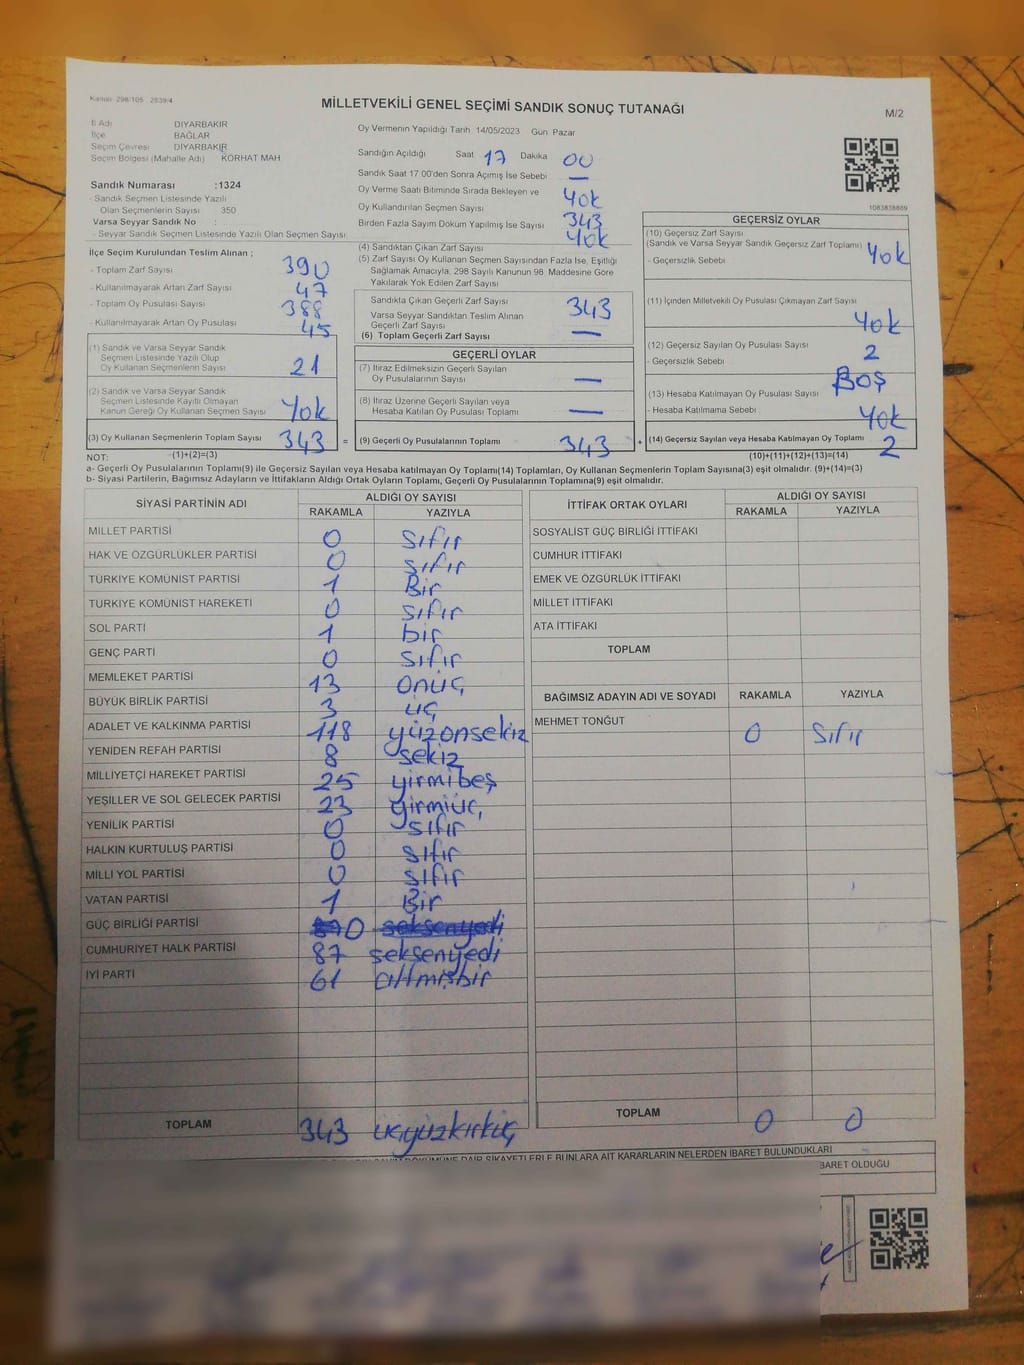 Kanun: 298/105 2839/4
MİLLETVEKİLİ GENEL SEÇİMİ SANDIK SONUÇ TUTANAĞI
M/2
İl Adı DİYARBAKIR
İlçe BAĞLAR
Seçim Çevresi DİYARBAKIR
Seçim Bölgesi (Mahalle Adı) KÖRHAT MAH
Sandık Numarası :1324
- Sandık Seçmen Listesinde Yazılı
Olan Seçmenlerin Sayısı 350
Varsa Seyyar Sandık No :
- Seyyar Sandık Seçmen Listesinde Yazılı Olan Seçmen Sayısı:
Oy Vermenin Yapıldığı Tarih 14/05/2023 Gün Pazar
Sandığın Açıldığı Saat 17 Dakika 00
Sandık Saat 17 00'den Sonra Açılmış İse Sebebi —
Oy Verme Saati Bitiminde Sırada Bekleyen ve
Oy Kullandırılan Seçmen Sayısı yok
Birden Fazla Sayım Döküm Yapılmış İse Sayısı 343
yok
1083838869
İlçe Seçim Kurulundan Teslim Alınan ;
- Toplam Zarf Sayısı 390
- Kullanılmayarak Artan Zarf Sayısı 47
- Toplam Oy Pusulası Sayısı 388
- Kullanılmayarak Artan Oy Pusulası 45
(1) Sandık ve Varsa Seyyar Sandık
Seçmen Listesinde Yazılı Olup
Oy Kullanan Seçmenlerin Sayısı 21
(2) Sandık ve Varsa Seyyar Sandık
Seçmen Listesinde Kayıtlı Olmayan
Kanun Gereği Oy Kullanan Seçmen Sayısı yok
(3) Oy Kullanan Seçmenlerin Toplam Sayısı 343 =
(1)+(2)=(3)
(4) Sandıktan Çıkan Zarf Sayısı
(5) Zarf Sayısı Oy Kullanan Seçmen Sayısından Fazla İse, Eşitliği
Sağlamak Amacıyla, 298 Sayılı Kanunun 98. Maddesine Göre
Yakılarak Yok Edilen Zarf Sayısı
Sandıkta Çıkan Geçerli Zarf Sayısı 343
Varsa Seyyar Sandıktan Teslim Alınan
Geçerli Zarf Sayısı
(6) Toplam Geçerli Zarf Sayısı —
GEÇERLİ OYLAR
(7) İtiraz Edilmeksizin Geçerli Sayılan
Oy Pusulalarının Sayısı —
(8) İtiraz Üzerine Geçerli Sayılan veya
Hesaba Katılan Oy Pusulası Toplamı —
(9) Geçerli Oy Pusulalarının Toplamı 343 +
GEÇERSİZ OYLAR
(10) Geçersiz Zarf Sayısı
(Sandık ve Varsa Seyyar Sandık Geçersiz Zarf Toplamı) yok
- Geçersizlik Sebebi
(11) İçinden Milletvekili Oy Pusulası Çıkmayan Zarf Sayısı
yok
(12) Geçersiz Sayılan Oy Pusulası Sayısı 2
- Geçersizlik Sebebi BOŞ
(13) Hesaba Katılmayan Oy Pusulası Sayısı
- Hesaba Katılmama Sebebi yok
(14) Geçersiz Sayılan veya Hesaba Katılmayan Oy Toplamı 2
(10)+(11)+(12)+(13)=(14)
NOT:
a- Geçerli Oy Pusulalarının Toplamı(9) ile Geçersiz Sayılan veya Hesaba katılmayan Oy Toplamı(14) Toplamları, Oy Kullanan Seçmenlerin Toplam Sayısına(3) eşit olmalıdır. (9)+(14)=(3)
b- Siyasi Partilerin, Bağımsız Adayların ve İttifakların Aldığı Ortak Oyların Toplamı, Geçerli Oy Pusulalarının Toplamına(9) eşit olmalıdır.
SİYASİ PARTİNİN ADI ALDIĞI OY SAYISI
RAKAMLA YAZIYLA
MİLLET PARTİSİ 0 sıfır
HAK VE ÖZGÜRLÜKLER PARTİSİ 0 sıfır
TÜRKİYE KOMÜNİST PARTİSİ 1 Bir
TÜRKİYE KOMÜNİST HAREKETİ 0 sıfır
SOL PARTİ 1 bir
GENÇ PARTİ 0 sıfır
MEMLEKET PARTİSİ 13 onüç
BÜYÜK BİRLİK PARTİSİ 3 üç
ADALET VE KALKINMA PARTİSİ 118 yüzonsekiz
YENİDEN REFAH PARTİSİ 8 sekiz
MİLLİYETÇİ HAREKET PARTİSİ 25 yirmibeş
YEŞİLLER VE SOL GELECEK PARTİSİ 23 yirmiüç
YENİLİK PARTİSİ 0 sıfır
HALKIN KURTULUŞ PARTİSİ 0 sıfır
MİLLİ YOL PARTİSİ 0 sıfır
VATAN PARTİSİ 1 Bir
GÜÇ BİRLİĞİ PARTİSİ 0 seksenyedi
CUMHURİYET HALK PARTİSİ 87 seksenyedi
İYİ PARTİ 61 altmışbir
TOPLAM 343 üçyüzkırküç
İTTİFAK ORTAK OYLARI ALDIĞI OY SAYISI
RAKAMLA YAZIYLA
SOSYALİST GÜÇ BİRLİĞİ İTTİFAKI
CUMHUR İTTİFAKI
EMEK VE ÖZGÜRLÜK İTTİFAKI
MİLLET İTTİFAKI
ATA İTTİFAKI
TOPLAM
BAĞIMSIZ ADAYIN ADI VE SOYADI RAKAMLA YAZIYLA
MEHMET TONĞUT 0 sıfır
TOPLAM 0 0
DÖKÜMÜNE DAİR ŞİKAYETLERLE BUNLARA AİT KARARLARIN NELERDEN İBARET BULUNDUKLARI
İBARET OLDUĞU